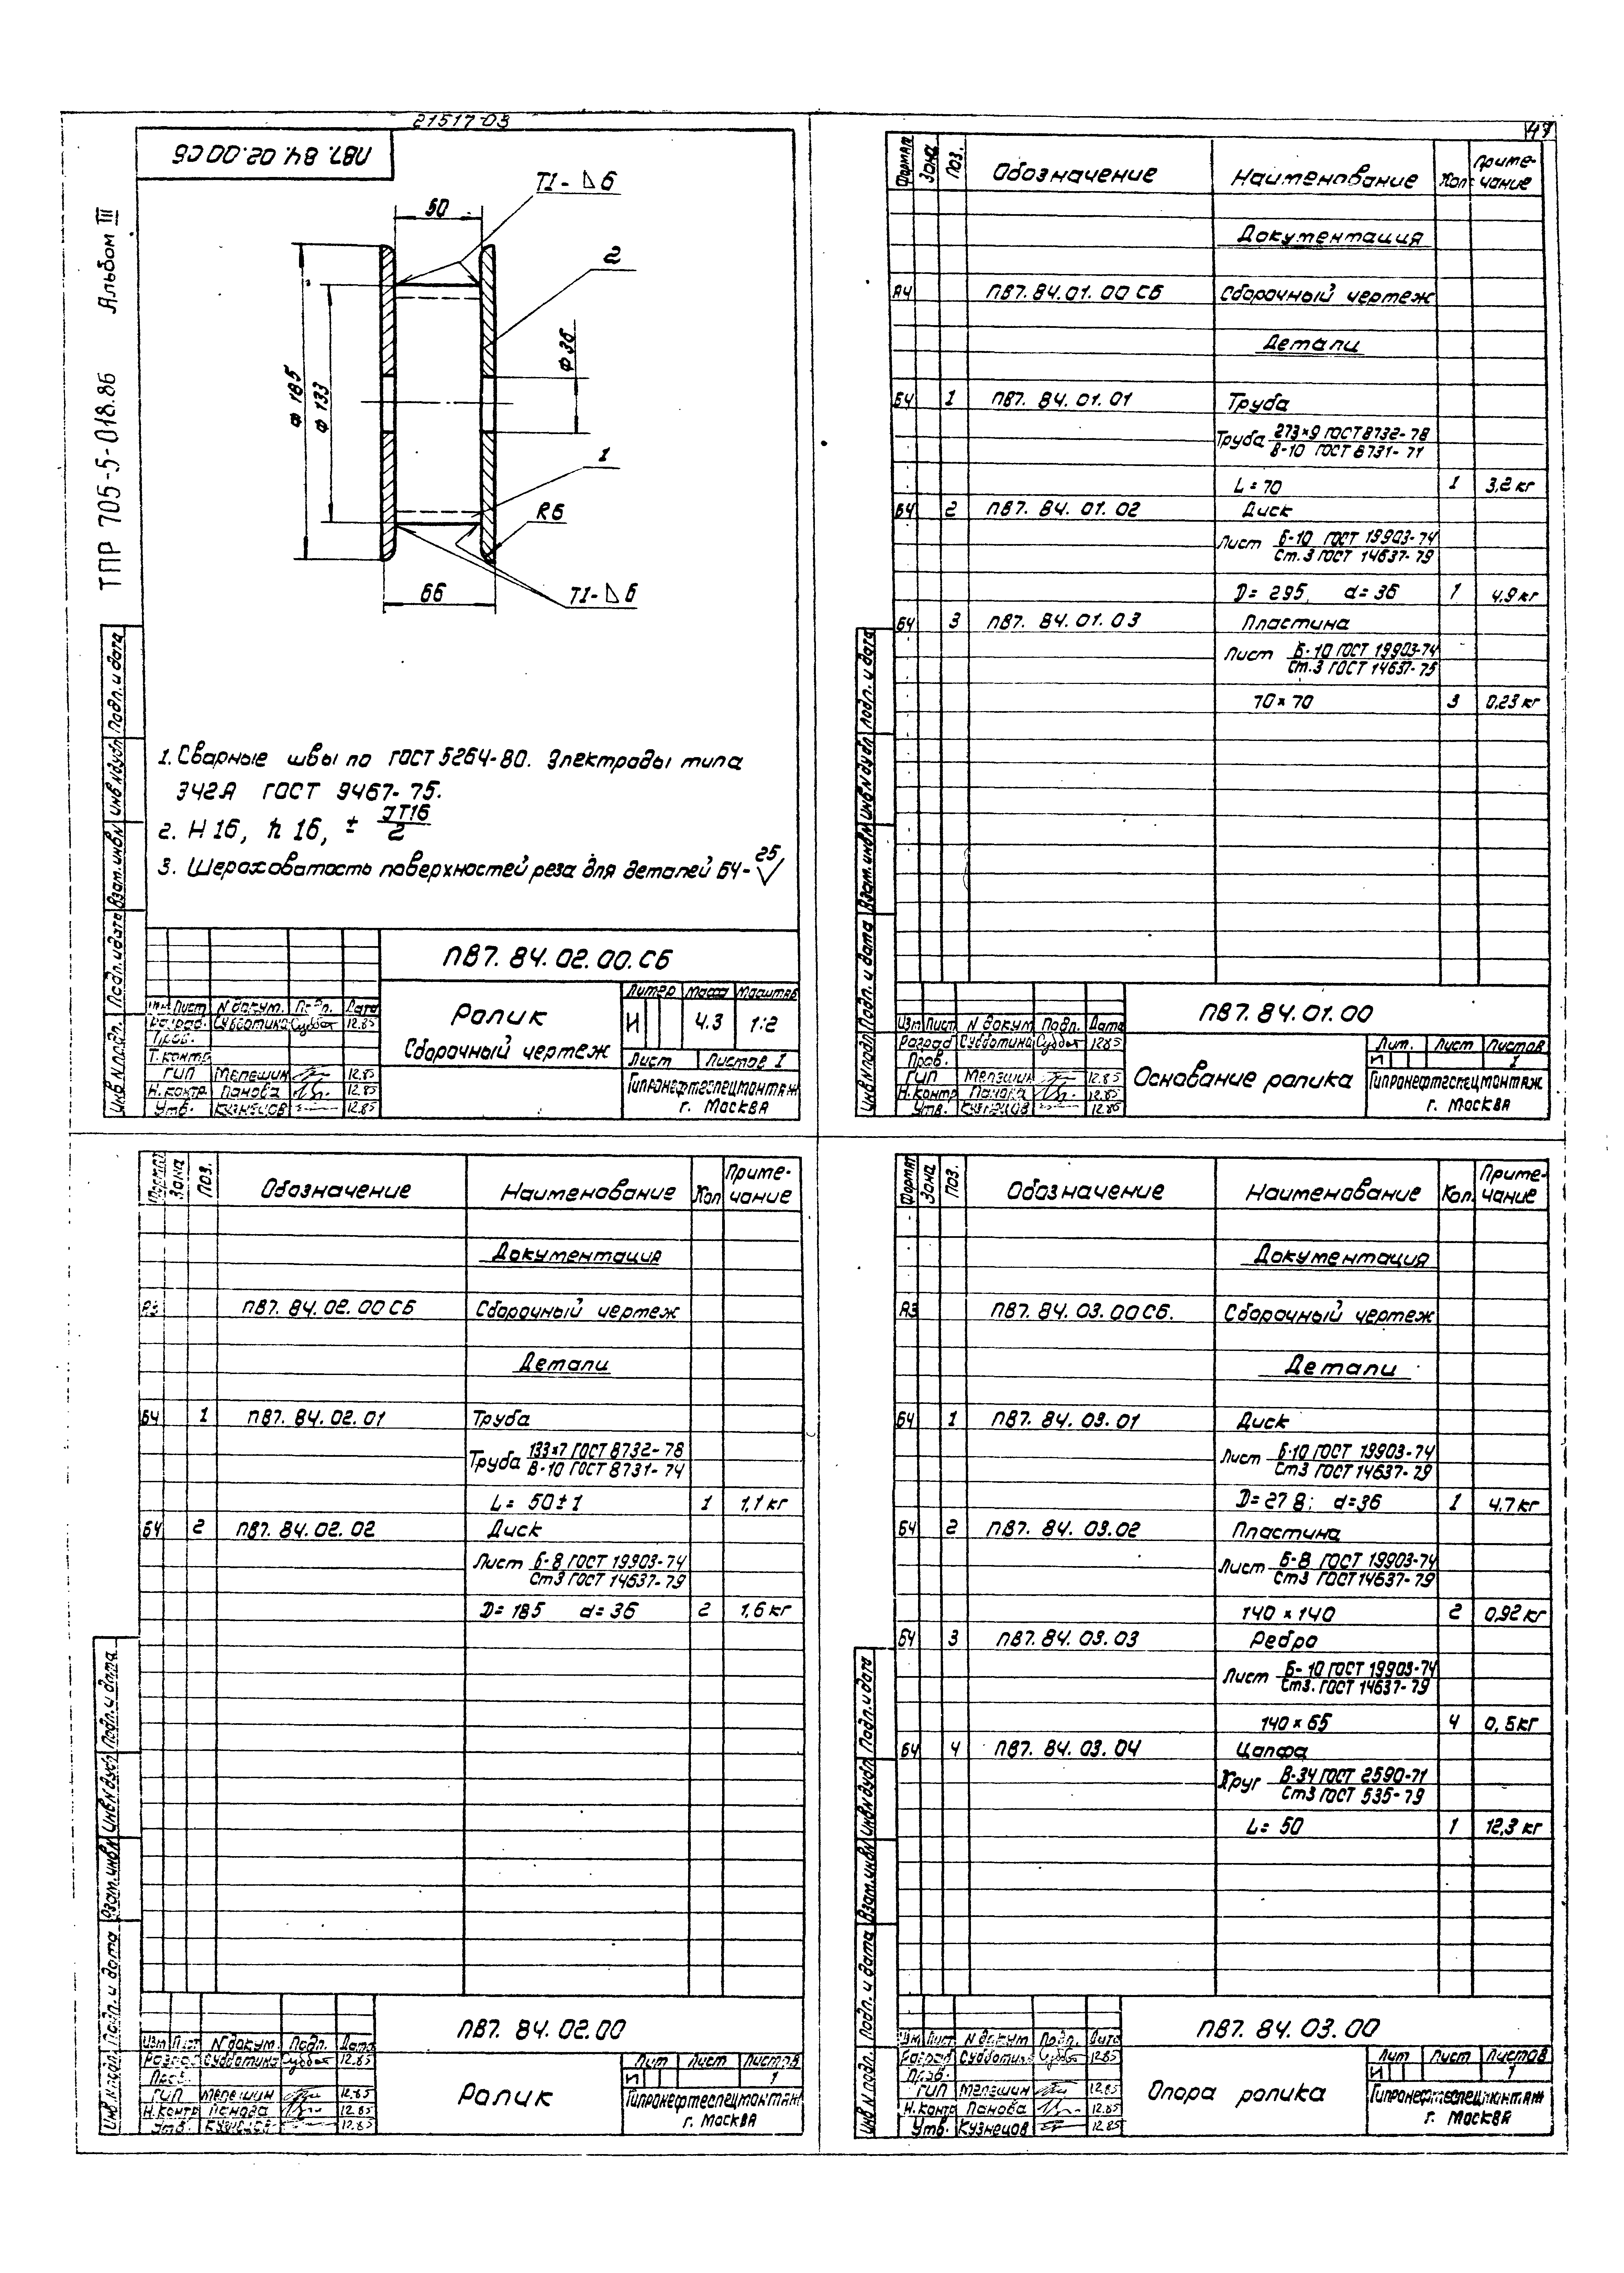 21517-03
47
ТПР 705-5-018.86 Альбом III
ПВ7. 84. 02. 00 СБ
Т1-◺6
50
2
Ф 185
Ф 133
Ф 36
1
R6
66
Т1-◺6
1. Сварные швы по ГОСТ 5264-80. Электроды типа
Э42А ГОСТ 9467-75.
2. H 16, h 16, ± JT16/2
3. Шероховатость поверхностей реза для деталей БЧ- 25√
Инв N подл. Подп. и дата Взам. инв N Инв N дубл Подп. и дата
ПВ7. 84. 02. 00. СБ
Изм Лист N докум. Подп. Дата
Разраб. Субботина 12.85
Пров.
Т. контр
ГИП Мелешин 12.85
Н. контр. Панова 12.85
Утв. Кузнецов 12.85
Ролик
Сборочный чертеж
Литер Масса Масштаб
И 4.3 1:2
Лист Листов 1
Гипронефтеспецмонтаж
г. Москва
Формат Зона Поз. Обозначение Наименование Кол. Приме-
чание
Документация
А4 ПВ7. 84. 01. 00 СБ Сборочный чертеж
Детали
БЧ 1 ПВ7. 84. 01. 01 Труба
Труба 273×9 ГОСТ 8732-78
В-10 ГОСТ 8731-71
L = 70 1 3,2 кг
БЧ 2 ПВ7. 84. 01. 02 Диск
Лист Б-10 ГОСТ 19903-74
Ст. 3 ГОСТ 14637-79
D= 295, d= 36 1 4,9 кг
БЧ 3 ПВ7. 84. 01. 03 Пластина
Лист Б-10 ГОСТ 19903-74
Ст. 3 ГОСТ 14637-75
70 × 70 3 0,23 кг
Инв N подл Подп. и дата Взам. инв N Инв N дубл Подп. и дата
ПВ7. 84. 01. 00
Изм Лист N докум Подп. Дата
Разраб Субботина 12.85
Пров.
ГИП Мелешин 12.85
Н. контр Панова 12.85
Утв. Кузнецов 12.85
Основание ролика
Лит. Лист Листов
И 1
Гипронефтеспецмонтаж
г. Москва
Формат Зона Поз. Обозначение Наименование Кол Приме-
чание
Документация
А3 ПВ7. 84. 02. 00 СБ Сборочный чертеж
Детали
БЧ 1 ПВ7. 84. 02. 01 Труба
Труба 133×7 ГОСТ 8732-78
В-10 ГОСТ 8731-74
L= 50±1 1 1,1 кг
БЧ 2 ПВ7. 84. 02. 02 Диск
Лист Б-8 ГОСТ 19903-74
Ст3 ГОСТ 14637-79
D= 185 d= 36 2 1,6 кг
Инв N подл. Подп. и дата Взам. инв N Инв N дубл Подп. и дата
ПВ7. 84. 02. 00
Изм Лист N докум Подп. Дата
Разраб Субботина 12.85
Пров.
ГИП Мелешин 12.85
Н. контр Панова 12.85
Утв. Кузнецов 12.85
Ролик
Лит Лист Листов
И 1
Гипронефтеспецмонтаж
г. Москва
Формат Зона Поз. Обозначение Наименование Кол. Приме-
чание
Документация
А3 ПВ7. 84. 03. 00 СБ. Сборочный чертеж
Детали
БЧ 1 ПВ7. 84. 03. 01 Диск
Лист Б-10 ГОСТ 19903-74
Ст3 ГОСТ 14637-79
D= 278; d=36 1 4,7 кг
БЧ 2 ПВ7. 84. 03. 02 Пластина
Лист Б-8 ГОСТ 19903-74
Ст3 ГОСТ 14637-79
140 × 140 2 0,92 кг
БЧ 3 ПВ7. 84. 03. 03 Ребро
Лист Б-10 ГОСТ 19903-74
Ст3. ГОСТ 14637-79
140 × 65 4 0,5 кг
БЧ 4 ПВ7. 84. 03. 04 Цапфа
Круг В-34 ГОСТ 2590-71
Ст3 ГОСТ 535-79
L= 50 1 12,3 кг
Инв N подл. Подп. и дата Взам. инв N Инв N дубл Подп. и дата
ПВ7. 84. 03. 00
Изм Лист N докум Подп. Дата
Разраб Субботина 12.85
Проб.
ГИП Мелешин 12.85
Н. контр Панова 12.85
Утв. Кузнецов 12.85
Опора ролика
Лит Лист Листов
И 1
Гипронефтеспецмонтаж
г. Москва